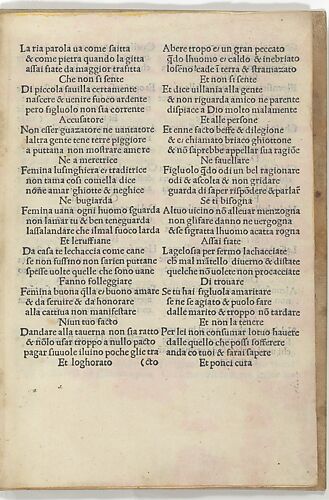 La ria parola ua come saitta
& come pietra quando la gitta
assai fiate da maggior trafitta
Che non si sente
Di piccola fauilla certamente
nascere & uenire fuoco ardente
pero figluolo non sia corrente
Accusatore
Non esser guazatore ne uantatore
laltra gente tener terre piggiore
a puttana non mostrare amore
Ne a meretrice
Femina lusingheira e traditrice
non tama cosi comella dice
nonne amar ghiotte & neghice
Ne bugiarda
Femina uana ogni huomo sguarda
non lamar tu & ben teneguarda
lassalandare che ilmal fuoco larda
Et leruffiane
Da casa te lechaccia come cane
se non fussino non sarien puttane
spesse uolte quelle che sono uane
Fanno folleggiare
Femina buona qlla e buono amare
& da seruire & da honorare
alla cattiua non manifestare
Niun tuo facto
Dandare alla tauerna non sia ratto
& nõlo usar troppo a nullo pacto
pagar suuole iluino poche glie tra
Et loghorato (cto
Abere tropo e un gran peccato
qdo lhuomo e caldo & inebriato
losẽno leade ĩ terra & stramazato
Et non si sente
Et dice uillania alla gente
& non riguarda amico ne parente
dispiace a Dio molto malamente
Et alle persone
Et enne facto beffe & dilegione
& e chiamato briaco ghiottone
& nõ saprebbe appellar sua ragiõe
Ne fauellare
Figluolo qdo odi un bel ragionare
odi & ascolta & non gridare
guarda di saper rispõdere & parlar
Se ti bisogna
Altuo uicino nõ alleuar menzogna
non glifare danno ne uergogna
& se sgratta lhuomo acatta rogna
Assai fiate
Lagelosa per fermo lachacciate
ch mal maritello diuerno & distate
quelche nõ uolete non procacciate
Di trouare
Se tu hai figluola amaritare
se ne se agiato & puolo fare
dalle marito & troppo nõ tardare
Et non la tenere
Per lei non consumar lotuo hauere
dalle quello che possi sofferere
anda co tuoi & farai sapere
Et ponci cura